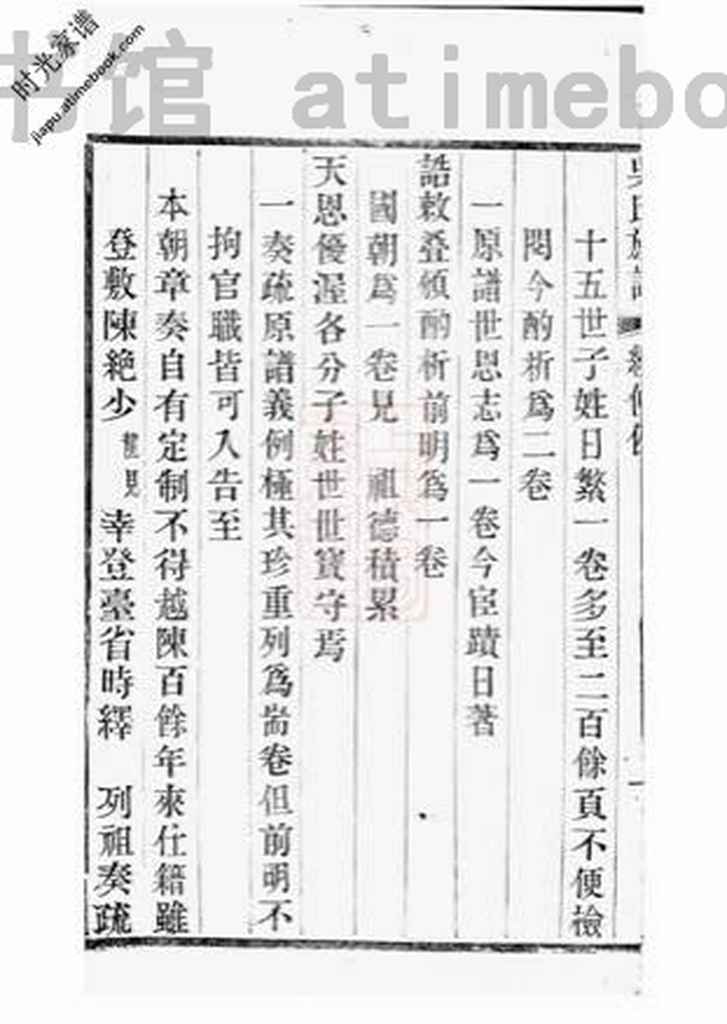 时光家谱
jiapu.atimebook.com
书馆 atimebo
十五世子姓日繁一卷多至二百餘頁不便檢
閱今酌析爲二卷
一原譜世恩志爲一卷今宦蹟日著
誥敕叠頒酌析前明爲一卷
國朝爲一卷見 祖德積累
天恩優渥各分子姓世世寶守焉
一奏疏原譜義例極其珍重列爲耑卷但前明不
拘官職皆可入告至
本朝章奏自有定制不得越陳百餘年來仕籍雖
登敷陳絶少 幸登臺省時繹 列祖奏疏